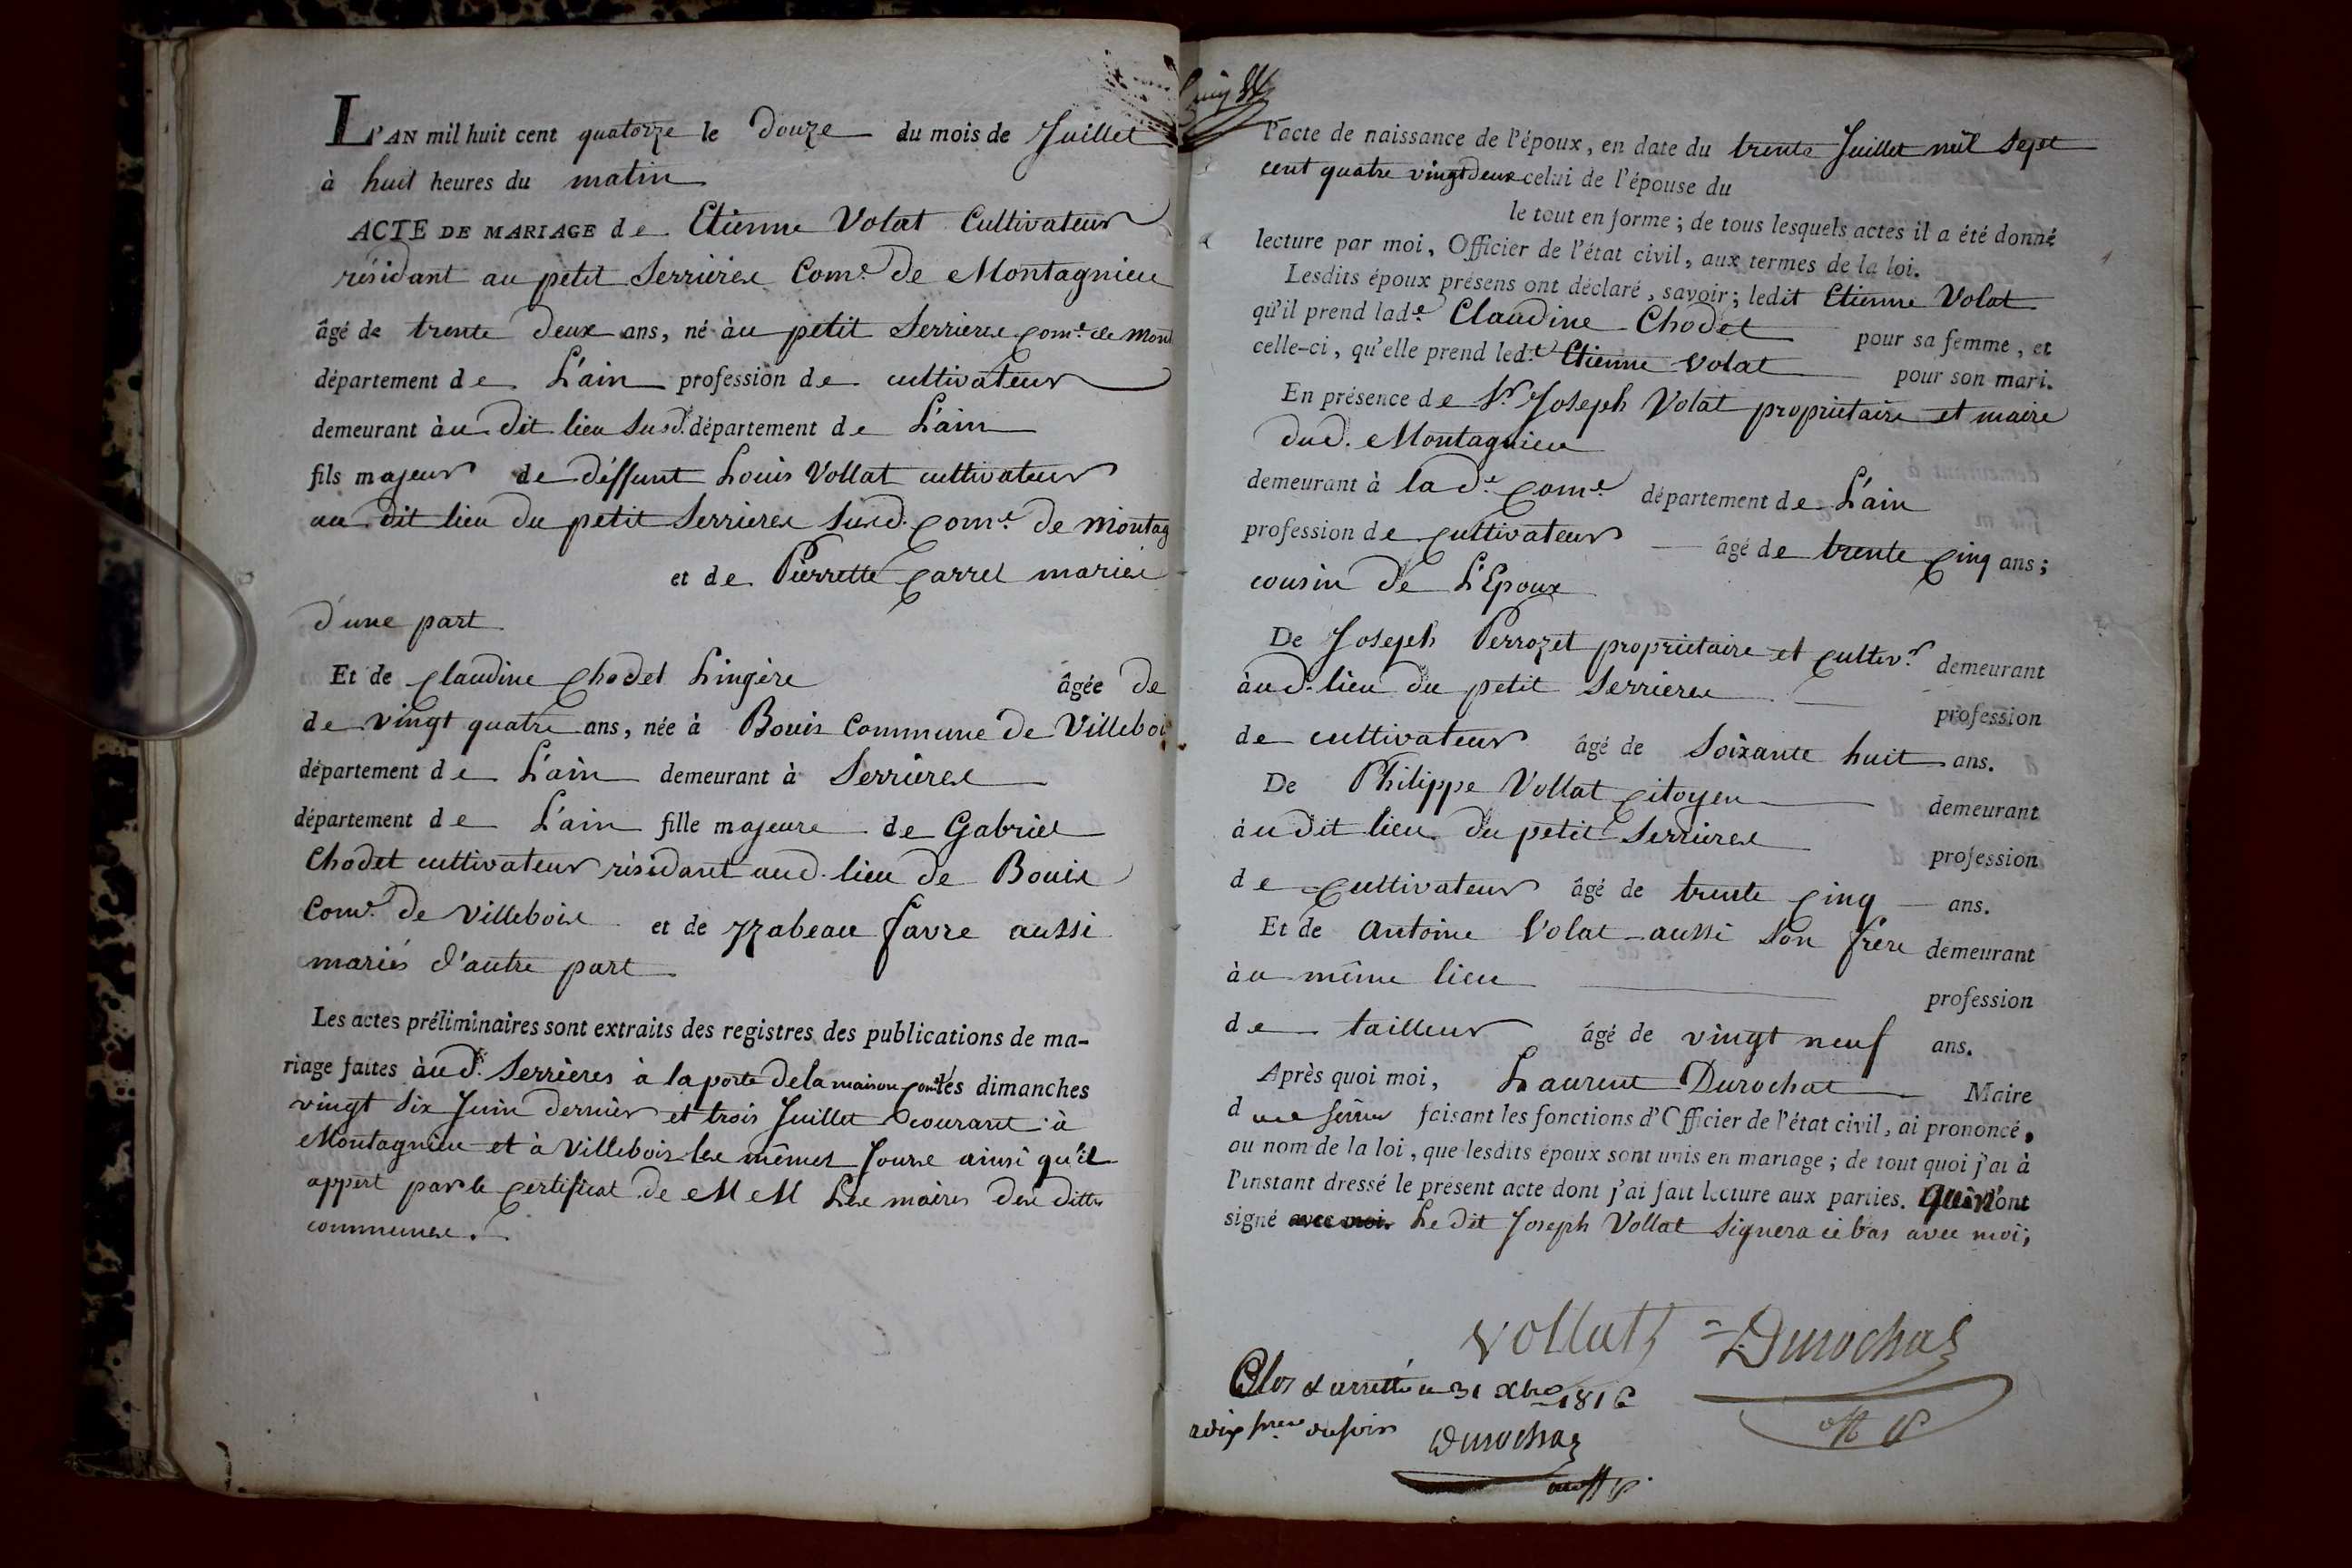 L'AN mil huit cent quatorze le douze du mois de Juillet
à huit heures du matin
ACTE DE MARIAGE de Etienne Volat Cultivateur
résidant au petit Serrières Com.e de Montagnieu
âgé de trente deux ans, né àu petit Serrieres com.e de Mont
département de L'ain profession de cultivateur
demeurant àu dit lieu susd. département de L'ain
fils majeur de déffunt Louis Vollat cultivateur
au dit lieu du petit Serrieres susd. com.e de montag
et de Pierrette Carrel mariés
d'une part
Et de Claudine Chodet Lingère âgée de
de vingt quatre ans, née à Bouis Commune de Villeboi
département de L'ain demeurant à Serrières
département de L'ain fille majeure de Gabriel
Chodet cultivateur résidant aud. lieu de Bouis
Com.e de Villebois et de Yzabeau favre aussi
mariés d'autre part
Les actes préliminaires sont extraits des registres des publications de ma-
riage faites àud. Serrières à la porte de la maison com.e les dimanches
vingt six Juin dernier et trois Juillet courant à
Montagnieu et à Villebois les mêmes Jours ainsi qu'il
appert par le certificat de M M Les maires des dittes
communes.
l'acte de naissance de l'époux, en date du trente Juillet mil sept
cent quatre vingt deux celui de l'épouse du
le tout en forme; de tous lesquels actes il a été donné
lecture par moi, Officier de l'état civil, aux termes de la loi.
Lesdits époux présens ont déclaré, savoir; ledit Etienne Volat
qu'il prend lad.e Claudine Chodet pour sa femme, et
celle-ci, qu'elle prend led.t Etienne Volat pour son mari.
En présence de Sr. Joseph Volat propriétaire et maire
dud. Montagnieu
demeurant à lad.e Com.e département de L'ain
profession de cultivateur âgé de trente cinq ans;
cousin de L'Epoux
De Joseph Perrozet propriétaire et cultiv.r demeurant
àud. lieu du petit Serrieres profession
de cultivateur âgé de Soixante huit ans.
De Philippe Vollat citoyen demeurant
àu dit lieu du petit Serrieres profession
de cultivateur âgé de trente cinq ans.
Et de Antoine Volat aussi son frere demeurant
àu même lieu profession
de tailleur âgé de vingt neuf ans.
Après quoi moi, Laurent Durochat Maire
d faisant les fonctions d'Officier de l'état civil, ai prononcé,
au nom de la loi, que lesdits époux sont unis en mariage; de tout quoi j'ai à
l'instant dressé le présent acte dont j'ai fait lecture aux parties. Qui n'ont
signé avec moi. Le dit Joseph Vollat signera ci bas avec moi;
Vollat Durochat
Clos & arretté ce 31 Xbre 181
du soir Durochat